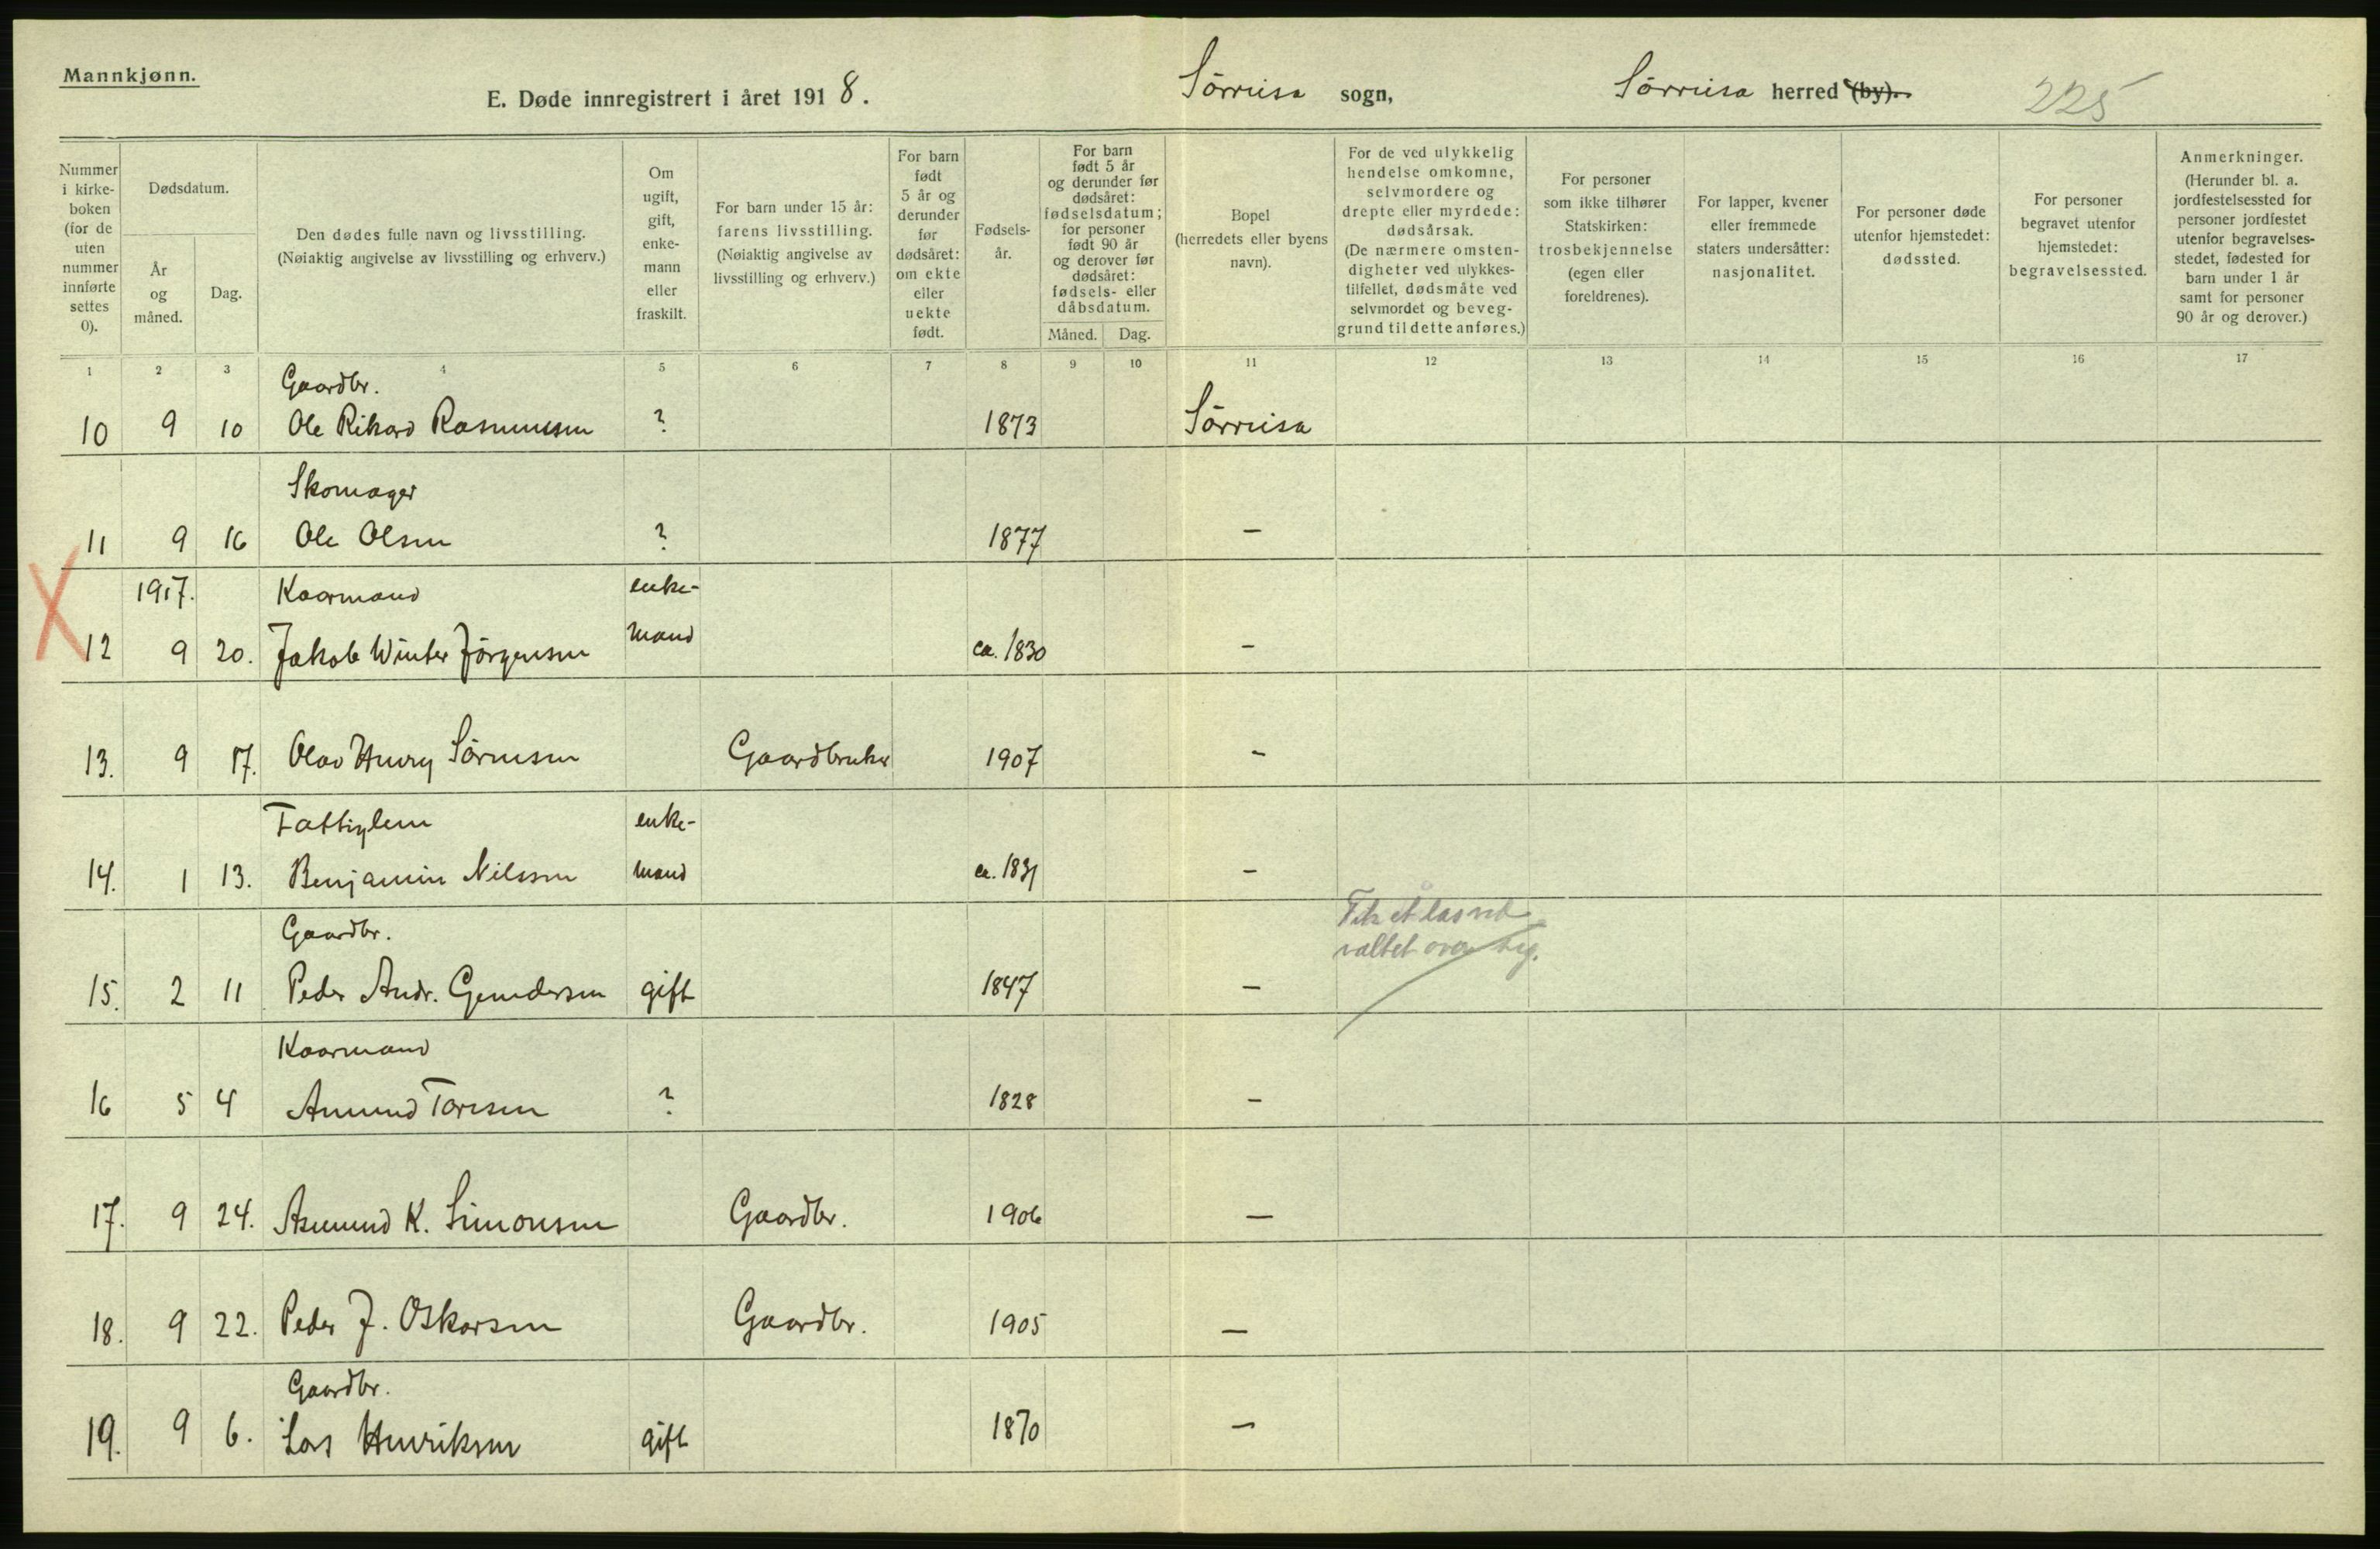 Mannkjønn.
E. Døde innregistrert i året 1918.
Sörreisa sogn,
Sörreisa herred (by).
225
Nummer i kirke-boken (for de uten nummer innførte settes 0).
Dødsdatum.
År og måned.
Dag.
Den dødes fulle navn og livsstilling.
(Nøiaktig angivelse av livsstilling og erhverv.)
Om ugift, gift, enke-mann eller fraskilt.
For barn under 15 år: farens livsstilling.
(Nøiaktig angivelse av livsstilling og erhverv.)
For barn født 5 år og derunder før dødsåret: om ekte eller uekte født.
Fødsels-år.
For barn født 5 år og derunder før dødsåret: fødselsdatum; for personer født 90 år og derover før dødsåret: fødsels- eller dåbsdatum.
Måned.
Dag.
Bopel (herredets eller byens navn).
For de ved ulykkelig hendelse omkomne, selvmordere og drepte eller myrdede: dødsårsak.
(De nærmere omsten-digheter ved ulykkes-tilfellet, dødsmåte ved selvmordet og beveg-grund til dette anføres.)
For personer som ikke tilhører Statskirken: trosbekjennelse (egen eller foreldrenes).
For lapper, kvener eller fremmede staters undersåtter: nasjonalitet.
For personer døde utenfor hjemstedet: dødssted.
For personer begravet utenfor hjemstedet: begravelsessted.
Anmerkninger.
(Herunder bl. a. jordfestelsessted for personer jordfestet utenfor begravelses-stedet, fødested for barn under 1 år samt for personer 90 år og derover.)
1 2 3 4 5 6 7 8 9 10 11 12 13 14 15 16 17
Gaardbr.
10 9 10 Ole Rikard Rasmussen ? 1873 Sörreisa
Skomager
11 9 16 Ole Olsen ? 1877 —
1917. Kaarmand enke-
12 9 20. Jakob Winter Jörgensen mand ca. 1830 —
13. 9 17. Olav Henry Sörensen Gaardbruker 1907 —
Fattiglem enke-
14. 1 13. Benjamin Nilssen mand ca. 1831 —
Gaardbr.
15. 2 11 Peder Andr. Gundersen gift 1847 —
Fik et læs ved
valtet over sig.
Kaarmand
16 5 4 Amund Toresen ? 1828 —
17. 9 24. Asmund K. Simonsen Gaardbr. 1906 —
18. 9 22. Peder J. Oskarsen Gaardbr. 1905 —
Gaardbr.
19. 9 6. Lars Henriksen gift 1870 —